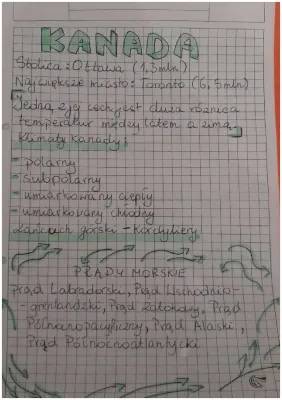 KANADA
Stolica: Ottawa (1,3mln)
Największe miasto: Toronto (6,5mln)
Jedną z jej cech jest duża różnica
temperatur między latem a zimą.
Klimaty Kanady:
- polarny
- subpolarny
- umiarkowany ciepły
- umiarkowany chłodny
Łańcuch górski - Kordyliery
PRĄDY MORSKIE
Prąd Labradorski, Prąd Wschodnio-
- grenlandzki, Prąd Zatokowy, Prąd
Północnopacyficzny, Prąd Alaski,
Prąd Północnoatlantycki